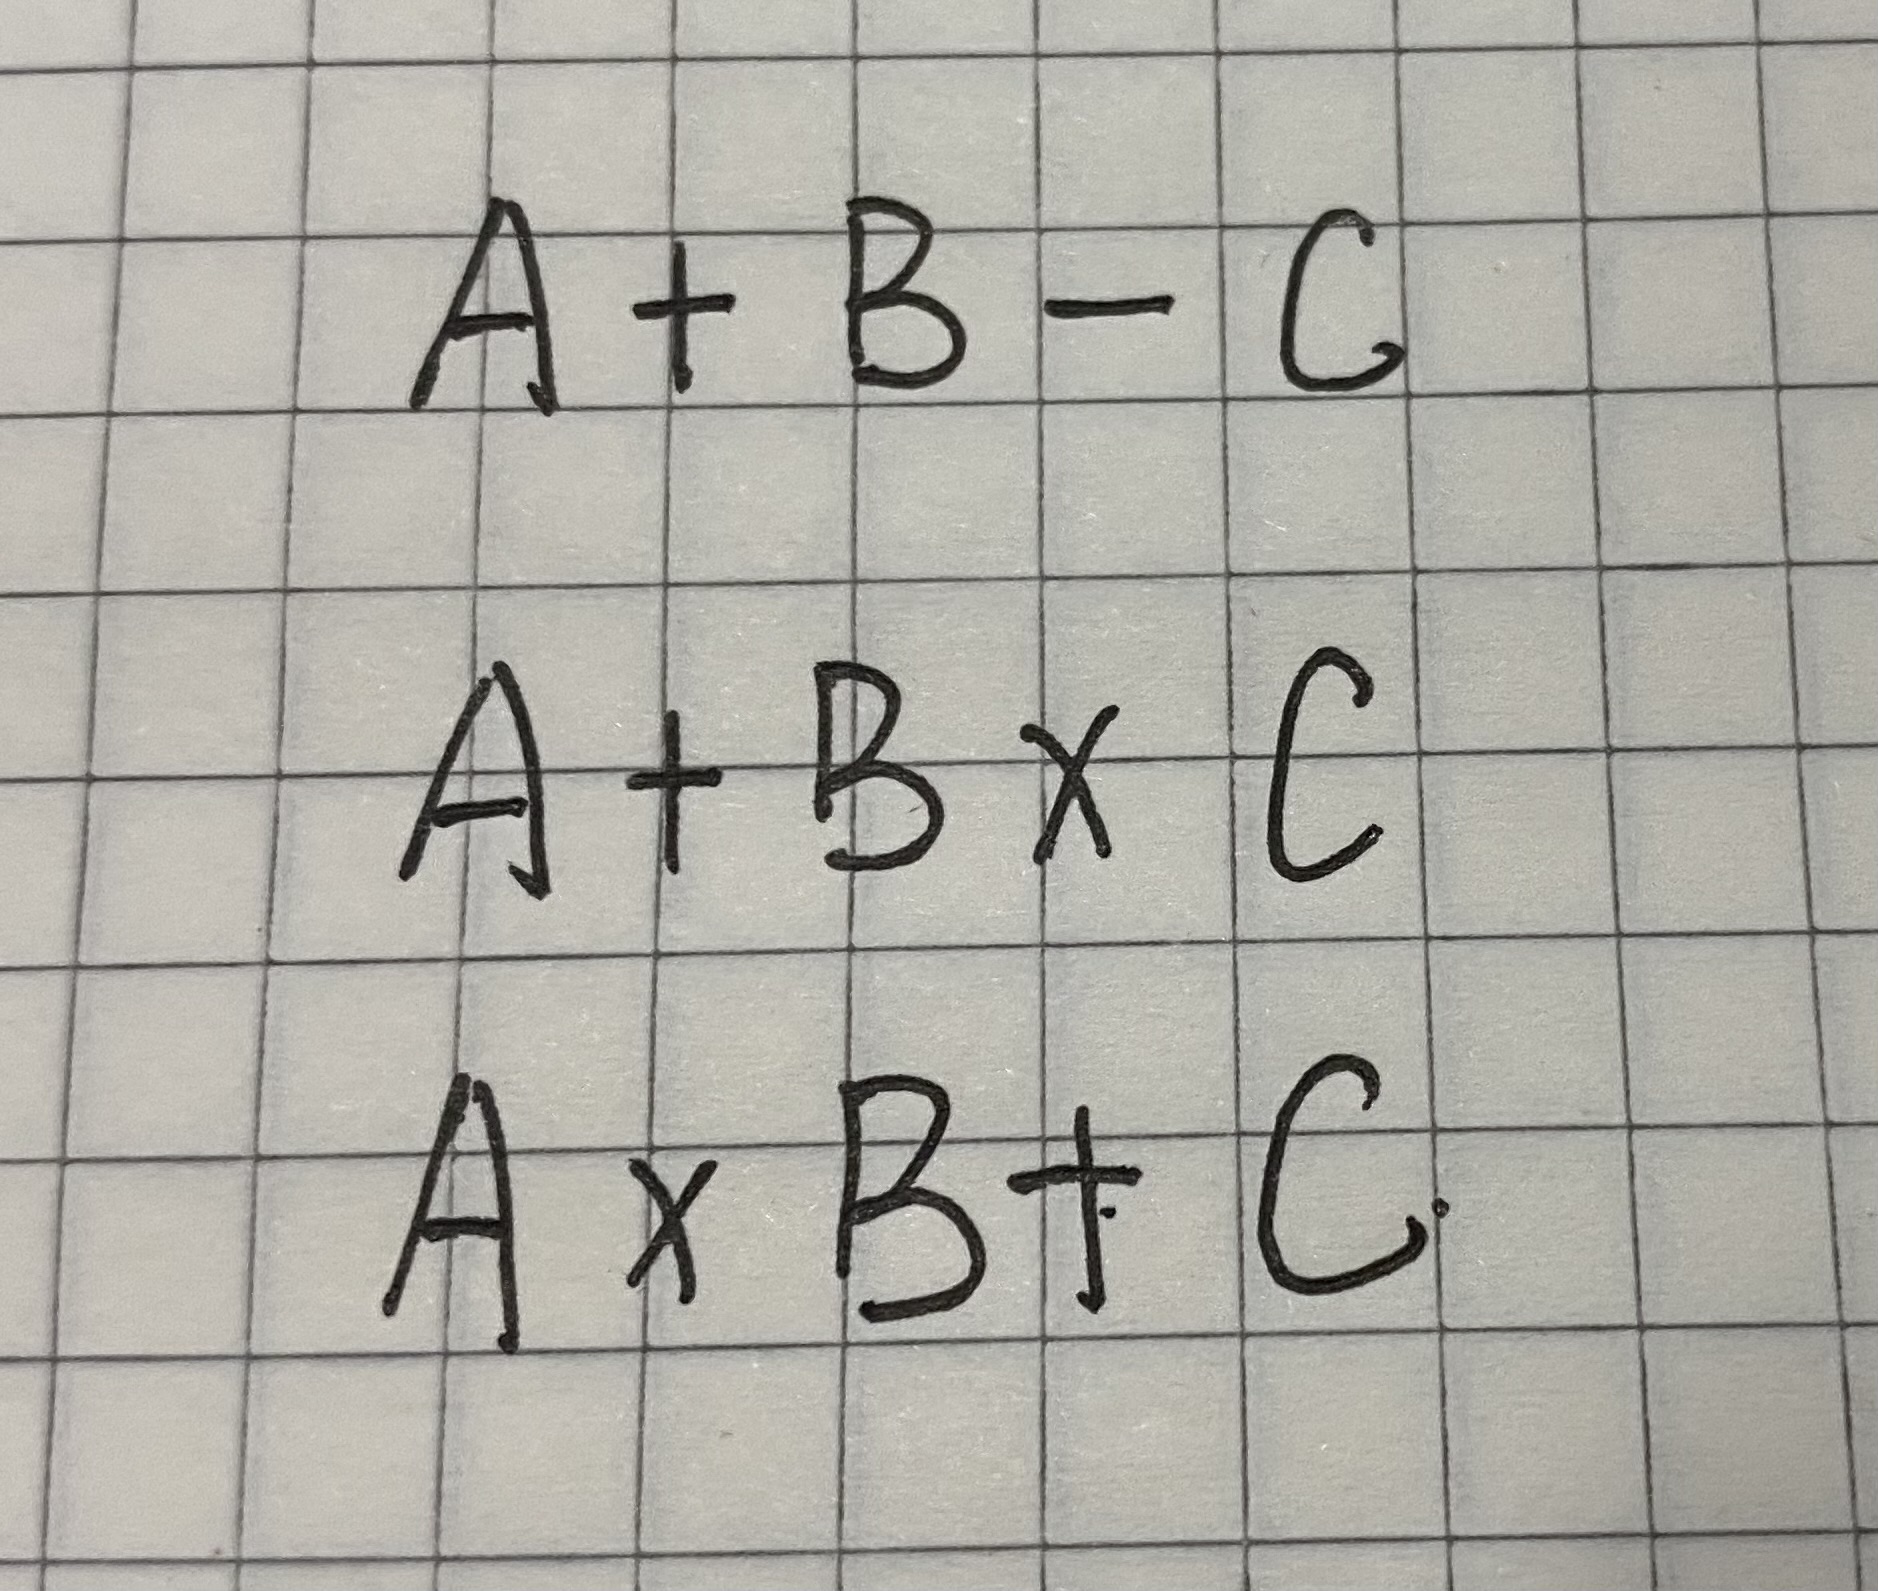 A + B - C
A + B × C
A × B + C